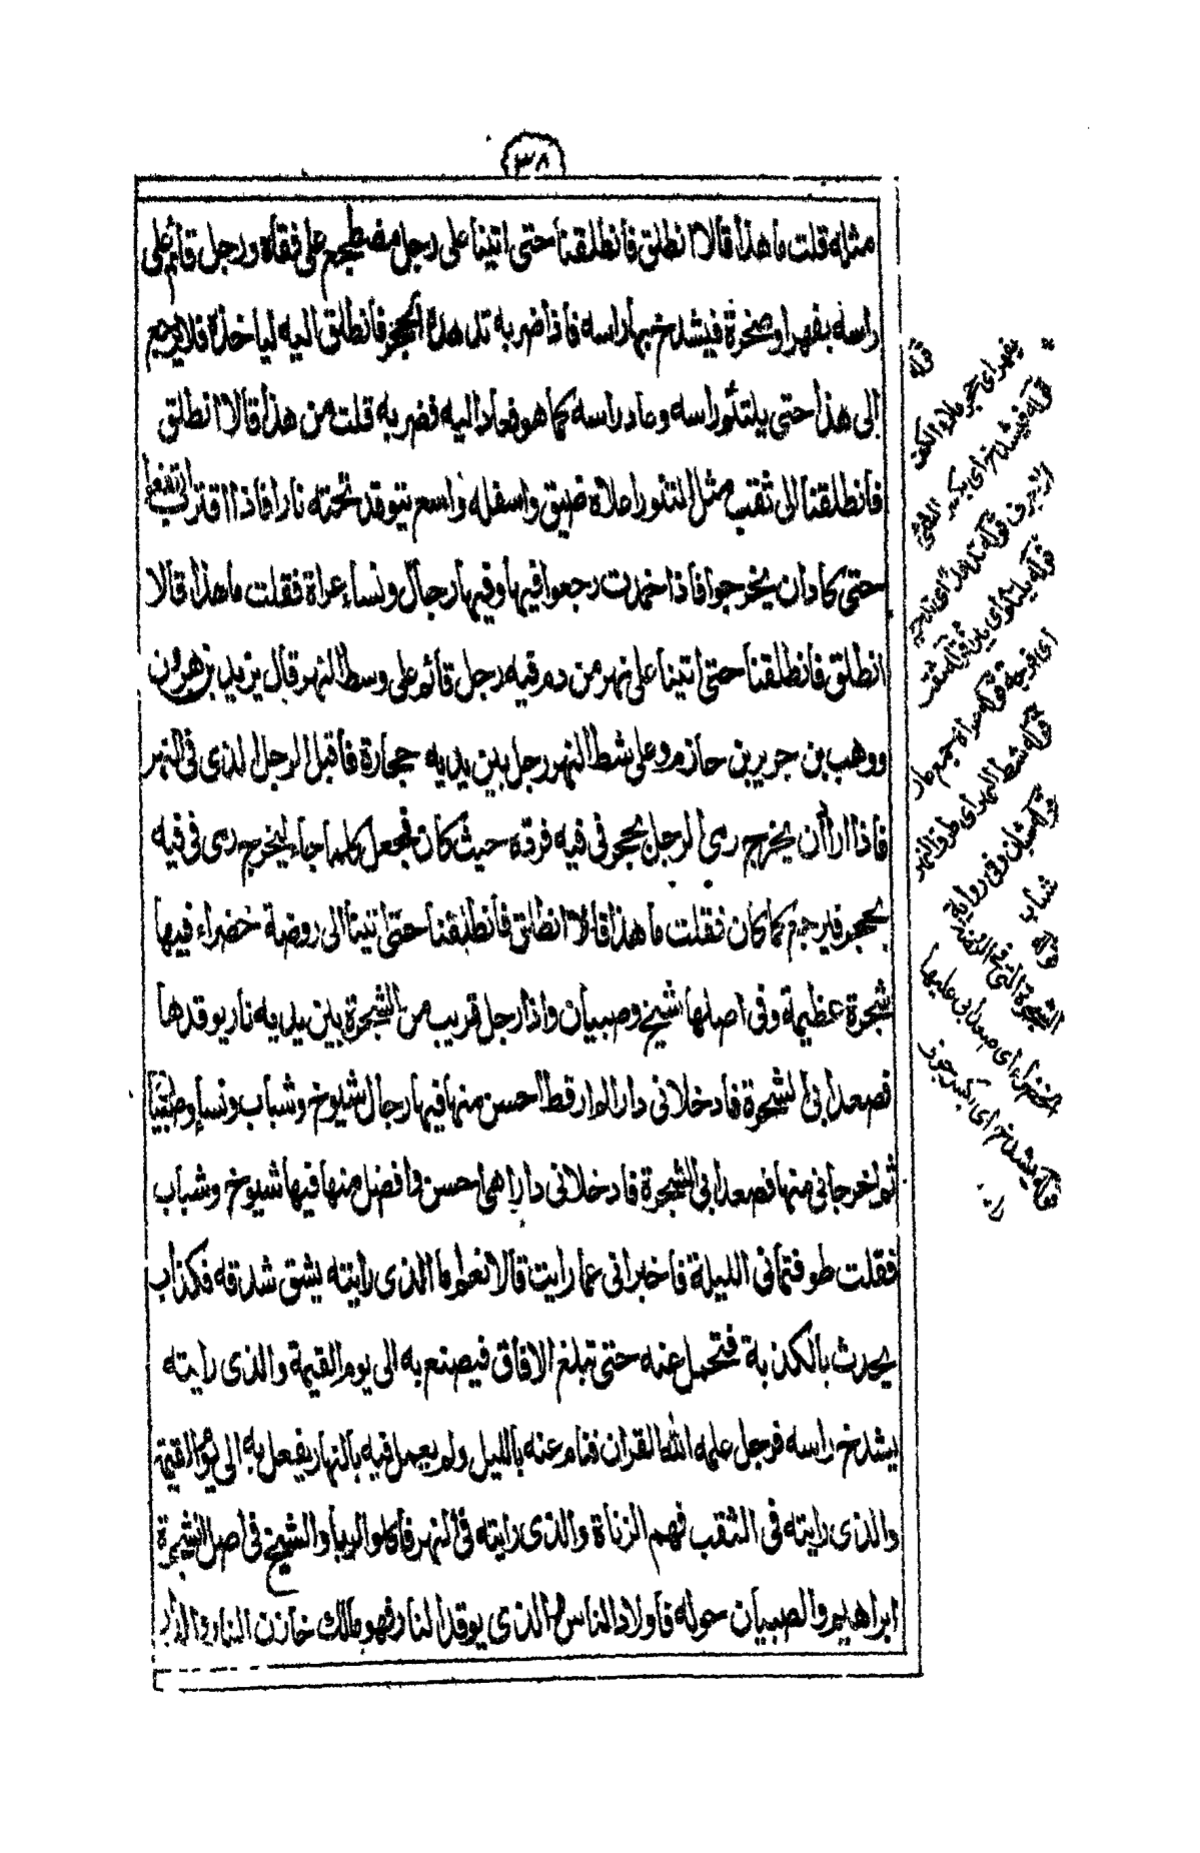 ٣٨
مثله قلت ما هذا قالا انطلق فانطلقنا حتى اتينا على رجل مضطجع على قفاه ورجل قائم على
راسه بفهر او صخرة فيشدخ بها راسه فاذا ضربه تدهده الحجر فانطلق اليه لياخذه فلا يرجع
الى هذا حتى يلتئم راسه وعاد راسه كما هو فعاد اليه فضربه قلت من هذا قالا انطلق
فانطلقنا الى ثقب مثل التنور اعلاه ضيق واسفله واسع تتوقد تحته نارا فاذا اقترب ارتفعوا
حتى كادان يخرجوا فاذا خمدت رجعوا فيها وفيها رجال ونساء عراة فقلت ما هذا قالا
انطلق فانطلقنا حتى اتينا على نهر من دم فيه رجل قائم على وسط النهر قال يزيد بن هرون
ووهب بن جرير بن حازم وعلى شط النهر رجل بين يديه حجارة فاقبل الرجل الذى فى النهر
فاذا اراد ان يخرج رمى الرجل بحجر فى فيه فرده حيث كان فجعل كلما جاء ليخرج رمى فى فيه
بحجر فيرجع كما كان فقلت ما هذا قالا انطلق فانطلقنا حتى اتينا الى روضة خضراء فيها
شجرة عظيمة وفى اصلها شيخ وصبيان واذا رجل قريب من الشجرة بين يديه نار يوقدها
فصعدا بى الشجرة فادخلانى دارا لم ار قط احسن منها فيها رجال شيوخ وشباب ونساء وصبيان
ثم اخرجانى منها فصعدا بى الشجرة فادخلانى دارا هى احسن وافضل منها فيها شيوخ وشباب
فقلت طوفتمانى الليلة فاخبرانى عما رايت قالا نعم اما الذى رايته يشق شدقه فكذاب
يحدث بالكذبة فتحمل عنه حتى تبلغ الافاق فيصنع به الى يوم القيمة والذى رايته
يشدخ راسه فرجل علمه الله القران فنام عنه بالليل ولم يعمل فيه بالنهار يفعل به الى يوم القيمة
والذى رايته فى الثقب فهم الزناة والذى رايته فى النهر فاكلوا الربا والشيخ فى اصل الشجرة
ابراهيم والصبيان حوله فاولاد الناس والذى يوقد النار فهو مالك خازن النار والدار
قوله
بفهر اى حجر ملاء الكف
قوله فيشدخ اى يكسر الشئ
الاجوف قوله تدهده اى تدحرج
قوله يلتئم اى
اى فرجة قوله عراة جمع عار
قوله شط النهر اى طرف النهر
قوله شبان وفى رواية
شباب
قوله
الشجرة التى فى الروضة
الخضراء اى صعدا بى عليها
قوله يشدخ اى يكسر